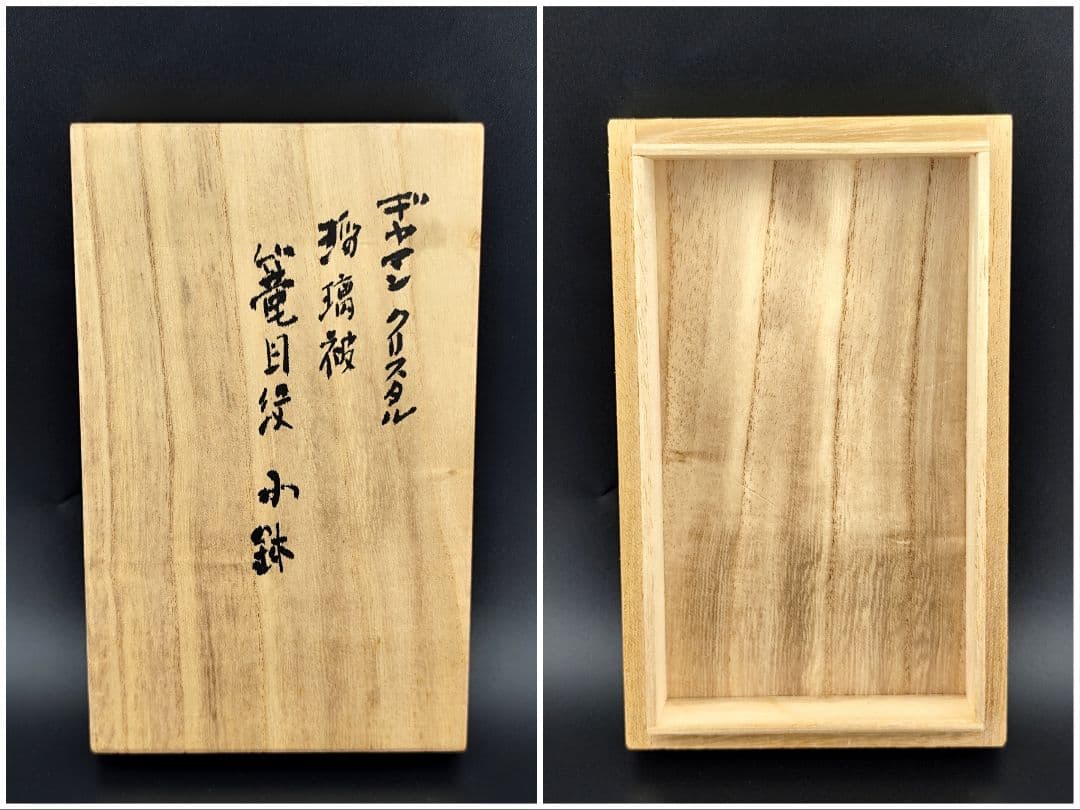 ギヤマンクリスタル
瑠璃被
籠目紋 小鉢